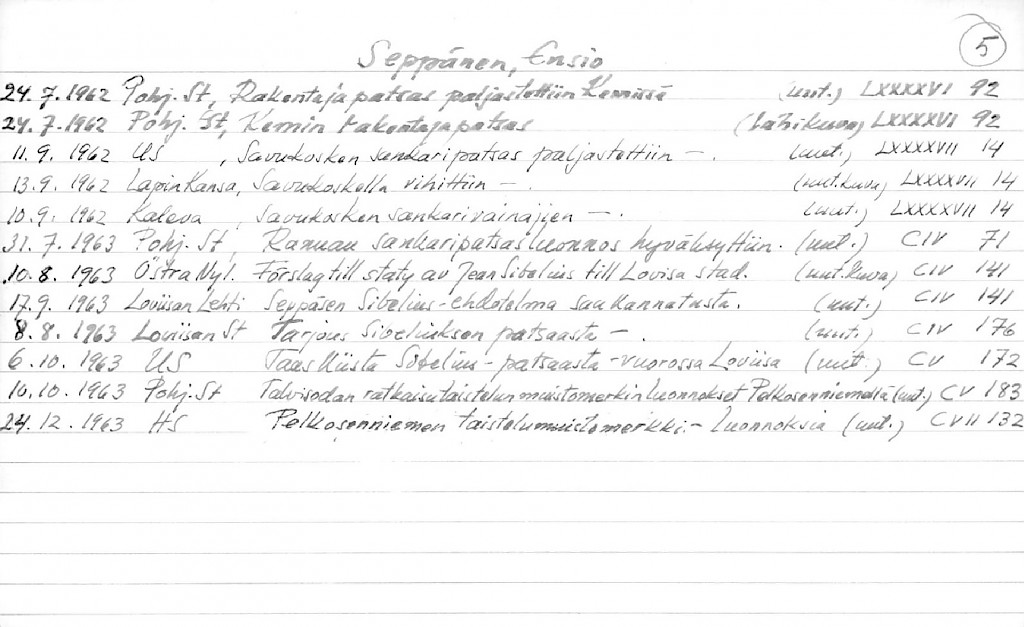 5
Seppänen, Ensio
24.7.1962 Pohj. St, Rakentajapatsas paljastettiin Kemissä (uut.) LXXXXVI 92
24.7.1962 Pohj. St, Kemin rakentajapatsas (Lähikuva) LXXXXVI 92
11.9. 1962 US , Savukosken sankaripatsas paljastettiin – . (uut.) LXXXXVII 14
13.9. 1962 Lapin Kansa, Savukoskella vihittiin – . (uut.kuva) LXXXXVII 14
10.9. 1962 Kaleva , Savukosken sankarivainajien – . (uut.) LXXXXVII 14
31.7.1963 Pohj. St, Ranuan sankaripatsasluonnos hyväksyttiin. (uut.) CIV 71
10.8. 1963 Östra Nyl. Förslag till staty av Jean Sibelius till Lovisa stad. (uut.kuva) CIV 141
17.9. 1963 Loviisan Lehti Seppäsen Sibelius-ehdotelma saa kannatusta. (uut.) CIV 141
8.8. 1963 Loviisan St Tarjous Sibeliuksen patsaasta – . (uut.) CIV 176
6.10.1963 US Taas kiista Sibelius-patsaasta - vuorossa Loviisa (uut.) CV 172
10.10.1963 Pohj. St Talvisodan ratkaisutaistelun muistomerkin luonnokset Pelkosenniemellä (uut.) CV 183
24.12.1963 HS Pelkosenniemen taistelumuistomerkki.- luonnoksia (uut.) CVII 132